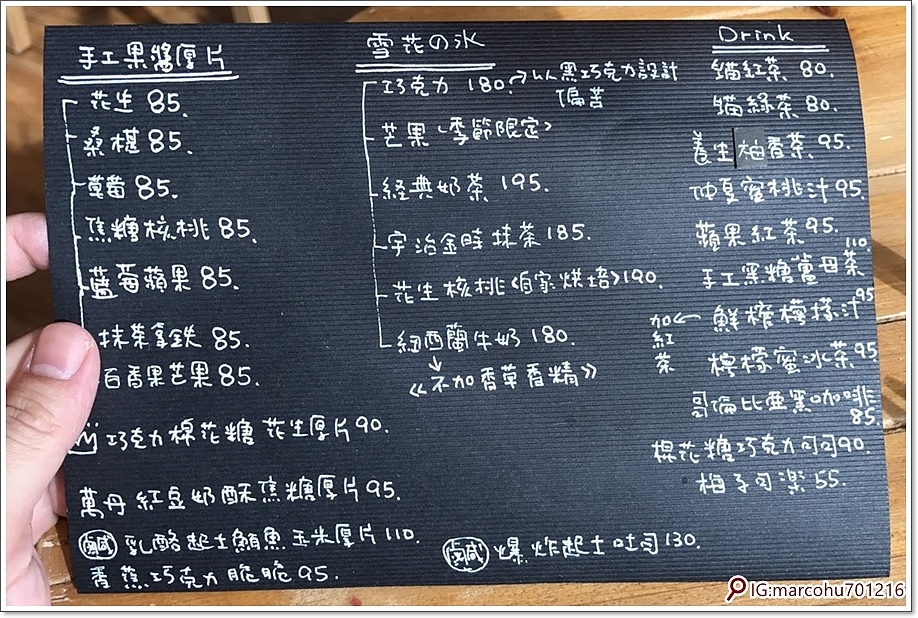 手工果醬厚片
花生 85.
桑椹 85.
草莓 85.
焦糖核桃 85.
藍莓蘋果 85.
抹茶拿鉄 85.
百香果芒果 85.
巧克力棉花糖 花生厚片 90.
萬丹 紅豆奶酥焦糖厚片 95.
鹹 乳酪起士鮪魚玉米厚片 110.
香蕉巧克力脆脆 95.
雪花の氷
巧克力 180. → 以黑巧克力設計
偏苦
芒果〈季節限定〉
経典奶茶 195.
宇治金時抹茶 185.
花生核桃〈自家烘培〉190.
紐西蘭牛奶 180.
↓
《不加香草香精》
鹹 爆炸起士吐司 130.
Drink
錨紅茶 80.
錨綠茶 80.
養生柚香茶. 95.
仲夏蜜桃汁 95.
蘋果紅茶 95.
手工黑糖薑母茶 110
加紅茶 ← 鮮榨檸檬汁 95
檸檬蜜冰茶 95
哥倫比亜黑咖啡
85.
棉花糖巧克力可可 90.
梅子可楽 55.
IG:marcohu701216